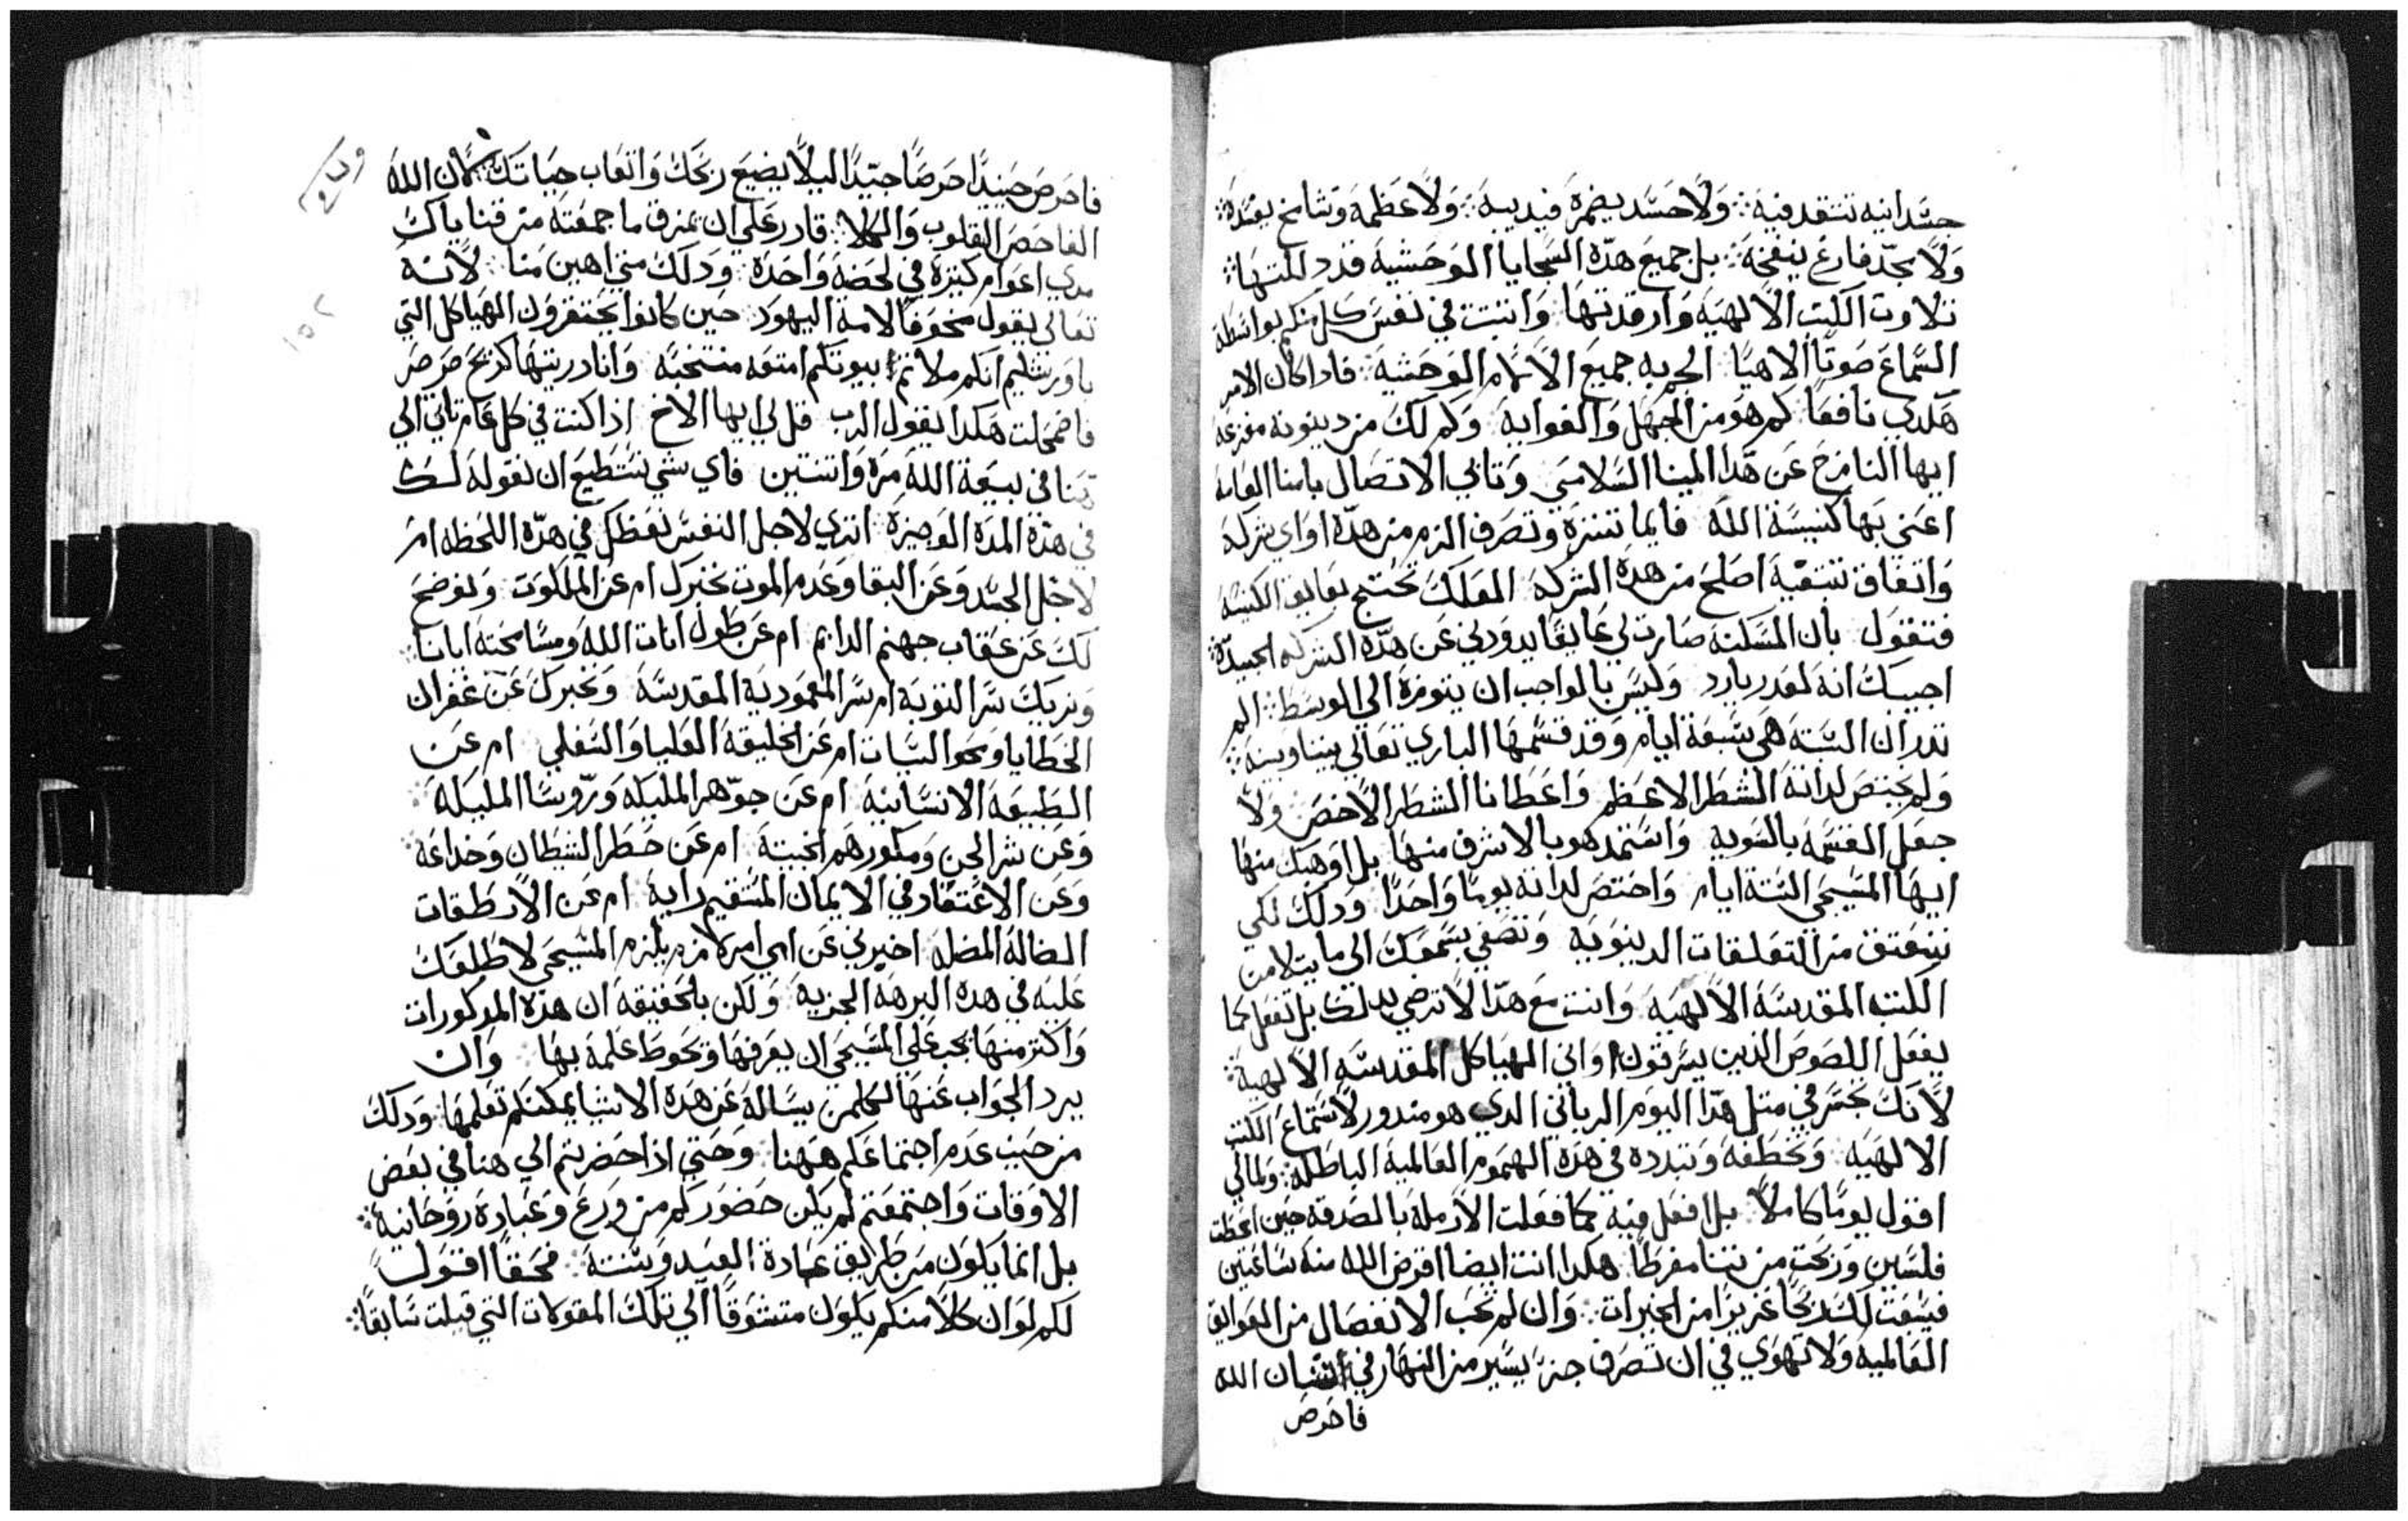 جسدانيه تتقد فيه ولا حسد يضمره فيديبه ولا عظمه وتشامخ يفسده
ولا مجد فارغ ينفخه بل جميع هذه السجايا الوحشية قد دللتها
تلاوت الكتب الالهيه وارقدتها وانبتت في نفس كل منكم بواسطة
السماع صوتًا الاهيًا الجم به جميع الالام الوحشية فاذا كان الامر
هكدي نافعًا كم هو من الجهل والغوايه وكم لك من دينونه مفزعه
ايها النازح عن هذا المينا السلامي وتابي الاتصال بامنا العامه
اعني بها كنيسة الله فايما تنزه وتصرف الزم من هذه او اي شركه
واتفاق تنتقيه اصلح من هذه الشركه العلك تحتج بعايق الكنيسه
فتقول بان المسكنه صارت لي عايقًا يدودني عن هذه الشركه الجيده
اجيبك انه لعدر بارد وليس بالواجب ان يتوره الي الوسط الم
تدر ان السته هي سبعة ايام وقد قسمها الباري تعالي بيننا وبينه
ولم يختص لداته الشطر الاعظم واعطانا الشطر الاخص ولا
جعل القسمه بالسويه واستمد هو بالاشرف منها بل اوهبك منها
ايها المسيحي الستة ايام واختص لداته يومًا واحدًا ودلك لكي
تنعتق من التعلقات الدينويه وتصغي بسمعك الي ما يتلا من
الكتب المقدسة الالهيه وانت مع هذا لا ترضي بدلك بل تفعل كما
يفعل اللصوص الذين يسرقون اواني الهياكل المقدسه الالهية
لانك تجسر في متل هذا اليوم الرباني الدي هو مندور لاستماع الكتب
الالهيه وتخطفه وتبدده في هذه الهموم العالمية الباطلة ولمالي
اقول يومًا كاملاً بل افعل فيه كما فعلت الارملة بالصدقه حين اعطت
فلسين وربحت من تننا مفرطا هكدا انت ايضا اقرض الله منه ساعتين
فيسفت لك ربحًا غزيرًا من الخيرات وان لم تحب الانفصال من العوايق
العالميه ولا تهوي في ان تصرف جزءً يسير من النهار في اتشان الله
فاحرص
فاحرص حينيدًا حرصًا جيّدًا ليلاً يضيع ربحك واتعاب حياتك لان الله
الفاحص القلوب والكلا قادر على ان يمزق ما جمعته من قناياك
مدي اعوام كثيرة في لحضة واحدة ودلك متي اهين منا لانه
تعالي يقول مخوفًا لامة اليهود حين كانوا يحتقرون الهياكل التي
باورشليم انكم ملاتم بيوتكم امتعه منتخبه وانا دريتها كريح صرصر
فاضمحلت هكدا يقول الرب قل لي ايها الاخ اذا كنت في كل عام تاتي الي
هنا في بيعة الله مره واتنتين فاي شي نستطيع ان نقوله لك
في هذه المدة الوجيزة اتري لاجل النفس نعظك في هذه اللحظه ام
لاجل الجسد وعن البقا وعدم الموت نخبرك ام عن الملكوت ونوضح
لك عن عقاب جهنم الدايم ام عن طول انات الله ومسامحته ايانا
ونريك سر التوبة ام سر المعمودية المقدسه ونخبرك عن غفران
الخطايا ومحو السيات ام عن الخليقه العليا والسفلي ام عن
الطبيعه الانسانيه ام عن جوّهر المليكه وروسا المليكه
وعن شر الجن ومكورهم الخبيتة ام عن خطر الشيطان وخداعه
وعن الاعتقاد في الايمان المستقيم رايه ام عن الارطقات
الضالة المضله اخبرني عن اي امر لازم يلزم المسيحي لاطلعك
عليه في هده البرهه الجزيه ولكن بالحقيقه ان هذه المدكورات
واكثر منها يجب على المسيحي ان يعرفها وتحوط علمه بها وان
يرد الجواب عنها لكلمن يساله عن هذه الاشيا يمكنكم تعلمها ودلك
من حيت عدم اجتماعكم ههنا وحتي اذا حضرتم الي هنا في بعض
الاوقات واجتمعتم لم يكن حضوركم من ورع وعبادة روحانيه
بل انما يكون من طريق عادة العيد وسنته فحقًا اقول
لكم لو ان كلاً منكم يكون متشوقًا الي تلك المقولات التي قيلت سابقًا